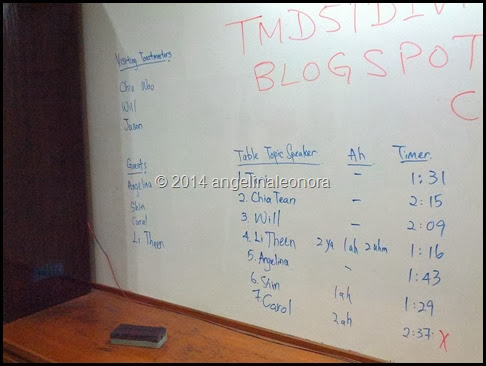 TMD51DIV
BLOGSPOT
C
Visiting Toastmasters
Chia Woo
Will
Jason
Guests
Angelina
Shin
Carol
Li Theen
Table Topic Speaker Ah Timer
1. - 1:31
2. Chia Tean - 2:15
3. Will - 2:09
4. Li Theen 2 ya 1 ah 2 uhm 1:16
5. Angelina - 1:43
6. Shin 1 ah 1:29
7. Carol 2 ah 2:37 X
© 2014 angelinaleonora